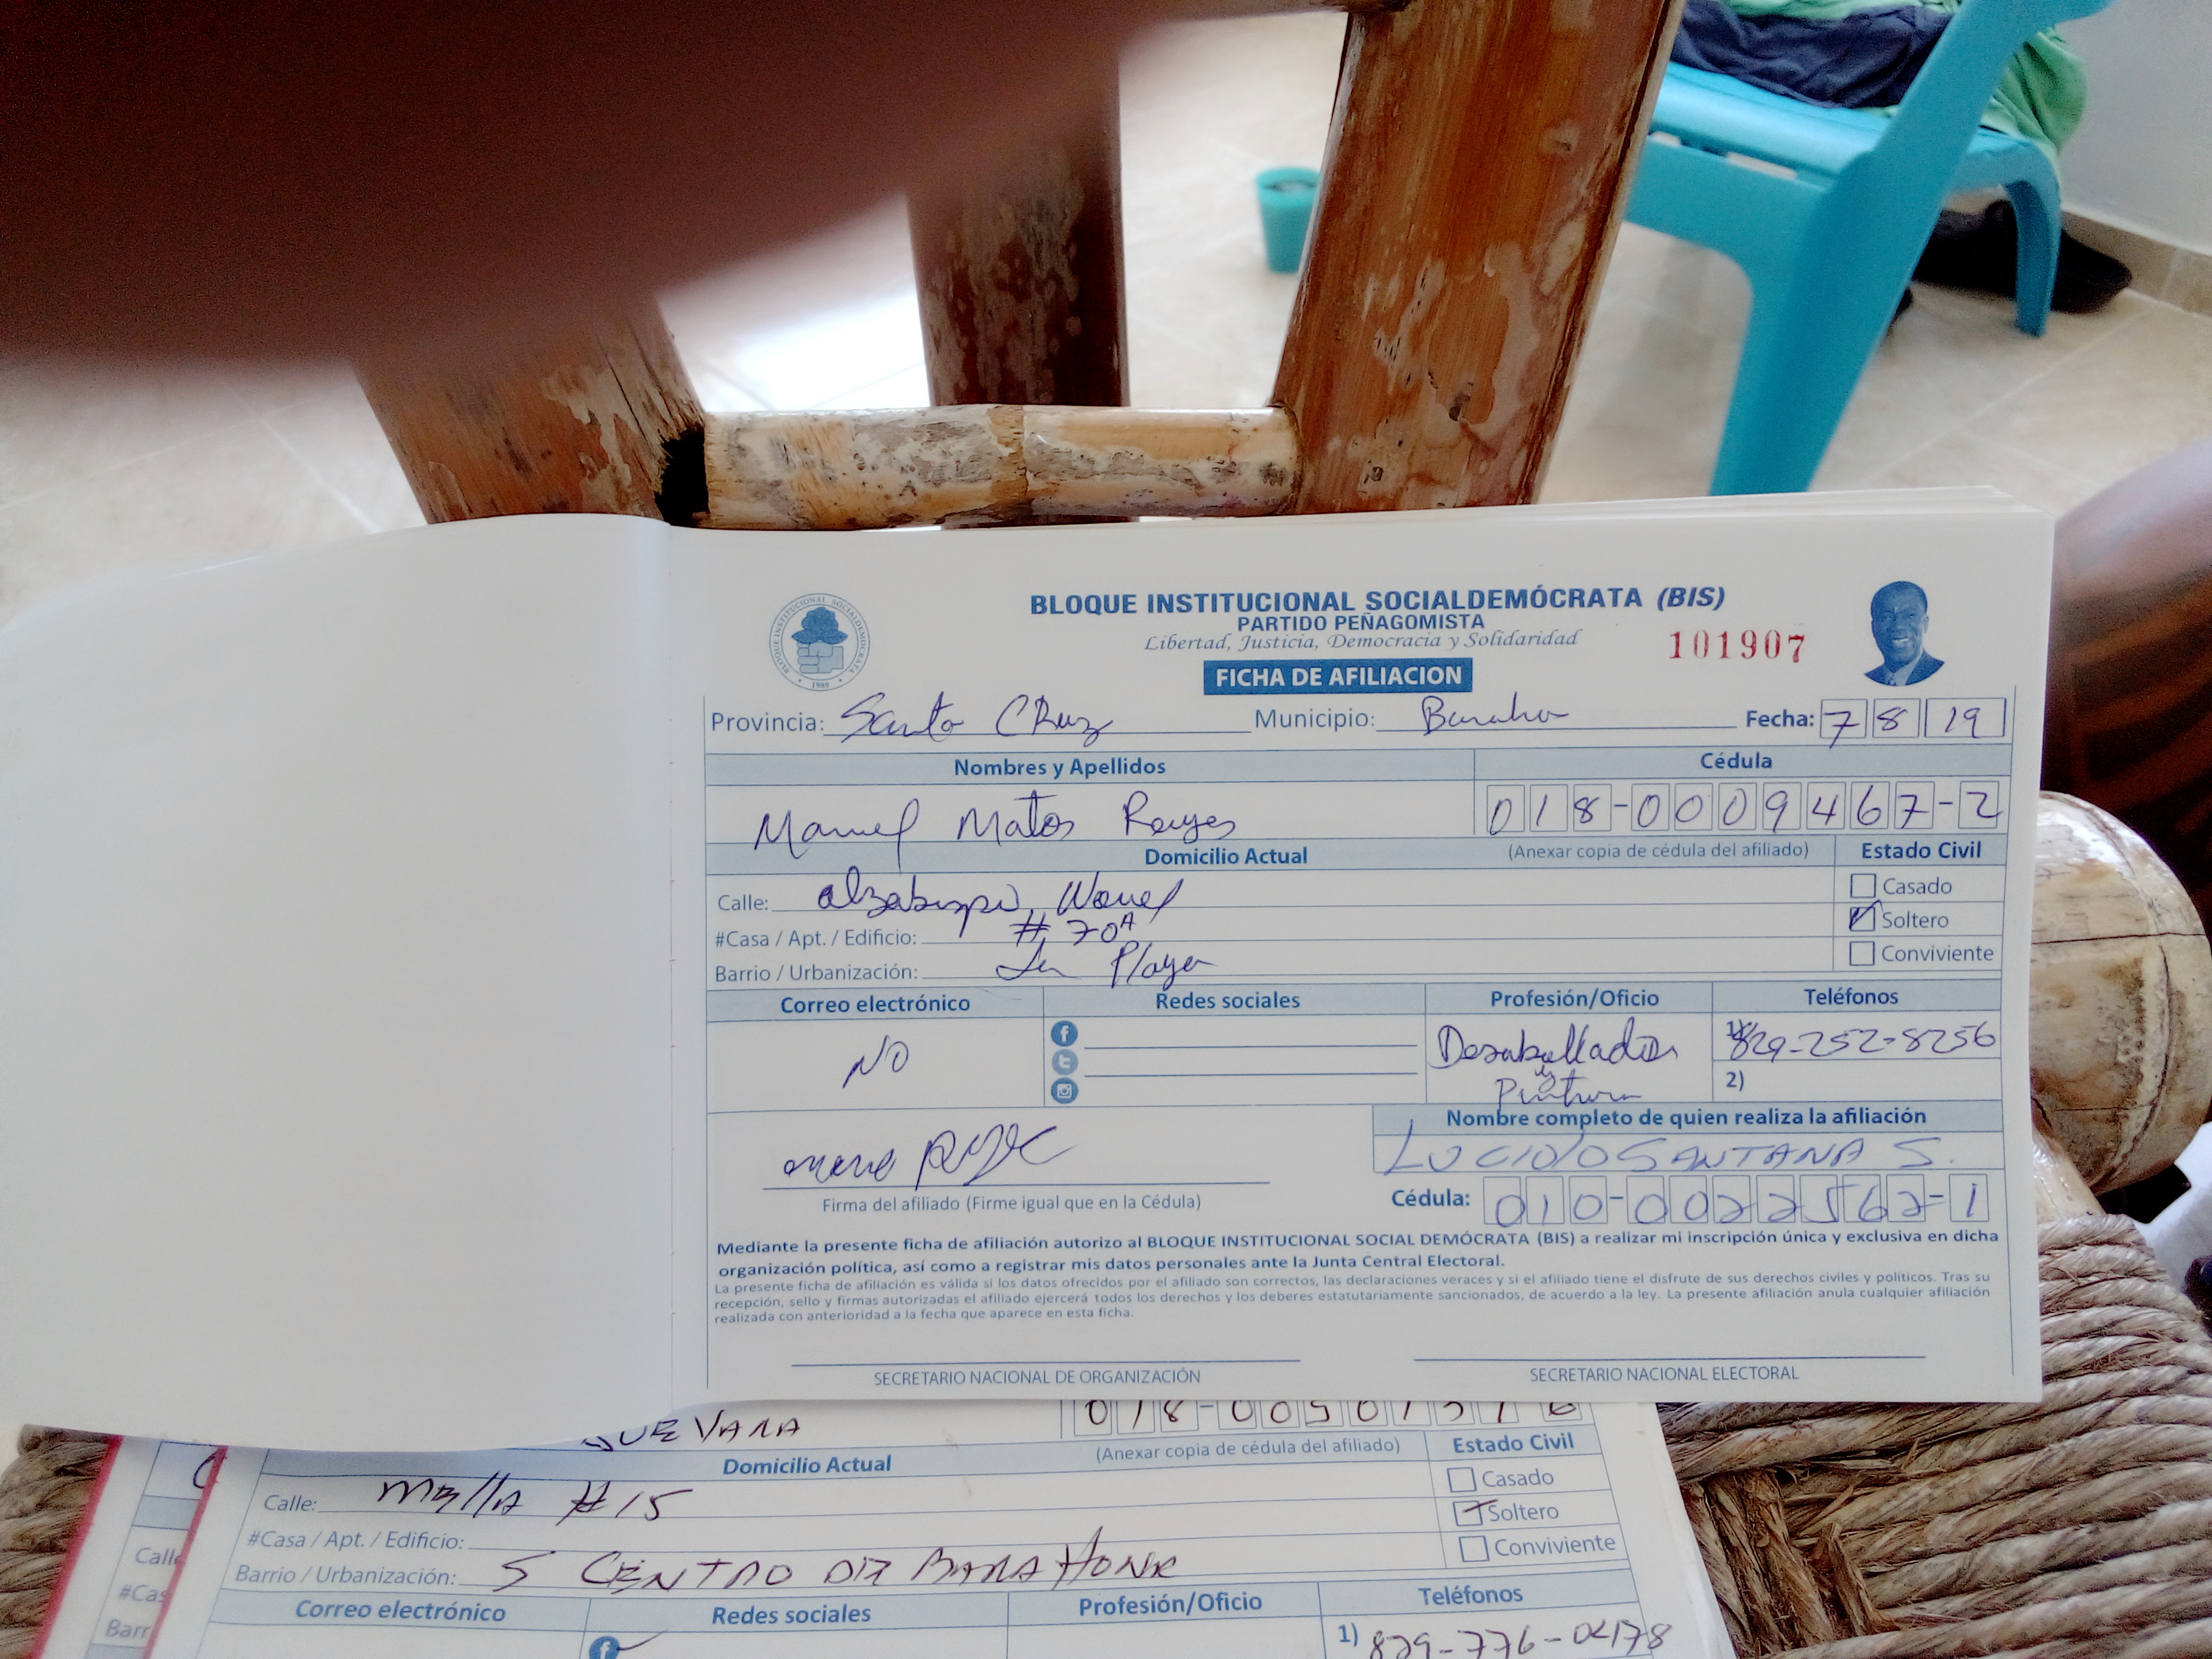 BLOQUE INSTITUCIONAL SOCIALDEMÓCRATA (BIS)
PARTIDO PEÑAGOMISTA
Libertad, Justicia, Democracia y Solidaridad
101907
FICHA DE AFILIACION
BLOQUE INSTITUCIONAL SOCIALDEMOCRATA
1989
Provincia: Santa CRuz Municipio: Fecha: 7 8 19
Nombres y Apellidos Cédula
Manuel Matos Reyes 018-0009467-2
Domicilio Actual (Anexar copia de cédula del afiliado) Estado Civil
Calle: Casado
#Casa / Apt. / Edificio: # 70A Soltero
Barrio / Urbanización: La Playa Conviviente
Correo electrónico Redes sociales Profesión/Oficio Teléfonos
NO Desabollador y Pintura 829-252-8256
2)
Nombre completo de quien realiza la afiliación
LUCIDO SANTANA S.
Firma del afiliado (Firme igual que en la Cédula) Cédula: 010-0022562-1
Mediante la presente ficha de afiliación autorizo al BLOQUE INSTITUCIONAL SOCIAL DEMÓCRATA (BIS) a realizar mi inscripción única y exclusiva en dicha
organización política, así como a registrar mis datos personales ante la Junta Central Electoral.
La presente ficha de afiliación es válida si los datos ofrecidos por el afiliado son correctos, las declaraciones veraces y si el afiliado tiene el disfrute de sus derechos civiles y políticos. Tras su
recepción, sello y firmas autorizadas el afiliado ejercerá todos los derechos y los deberes estatutariamente sancionados, de acuerdo a la ley. La presente afiliación anula cualquier afiliación
realizada con anterioridad a la fecha que aparece en esta ficha.
SECRETARIO NACIONAL DE ORGANIZACIÓN SECRETARIO NACIONAL ELECTORAL
Domicilio Actual (Anexar copia de cédula del afiliado) Estado Civil
Calle: Mella #15 Casado
#Casa / Apt. / Edificio: Soltero
Barrio / Urbanización: CENTRO DE BARAHONA Conviviente
Correo electrónico Redes sociales Profesión/Oficio Teléfonos
1) 829-776-0478